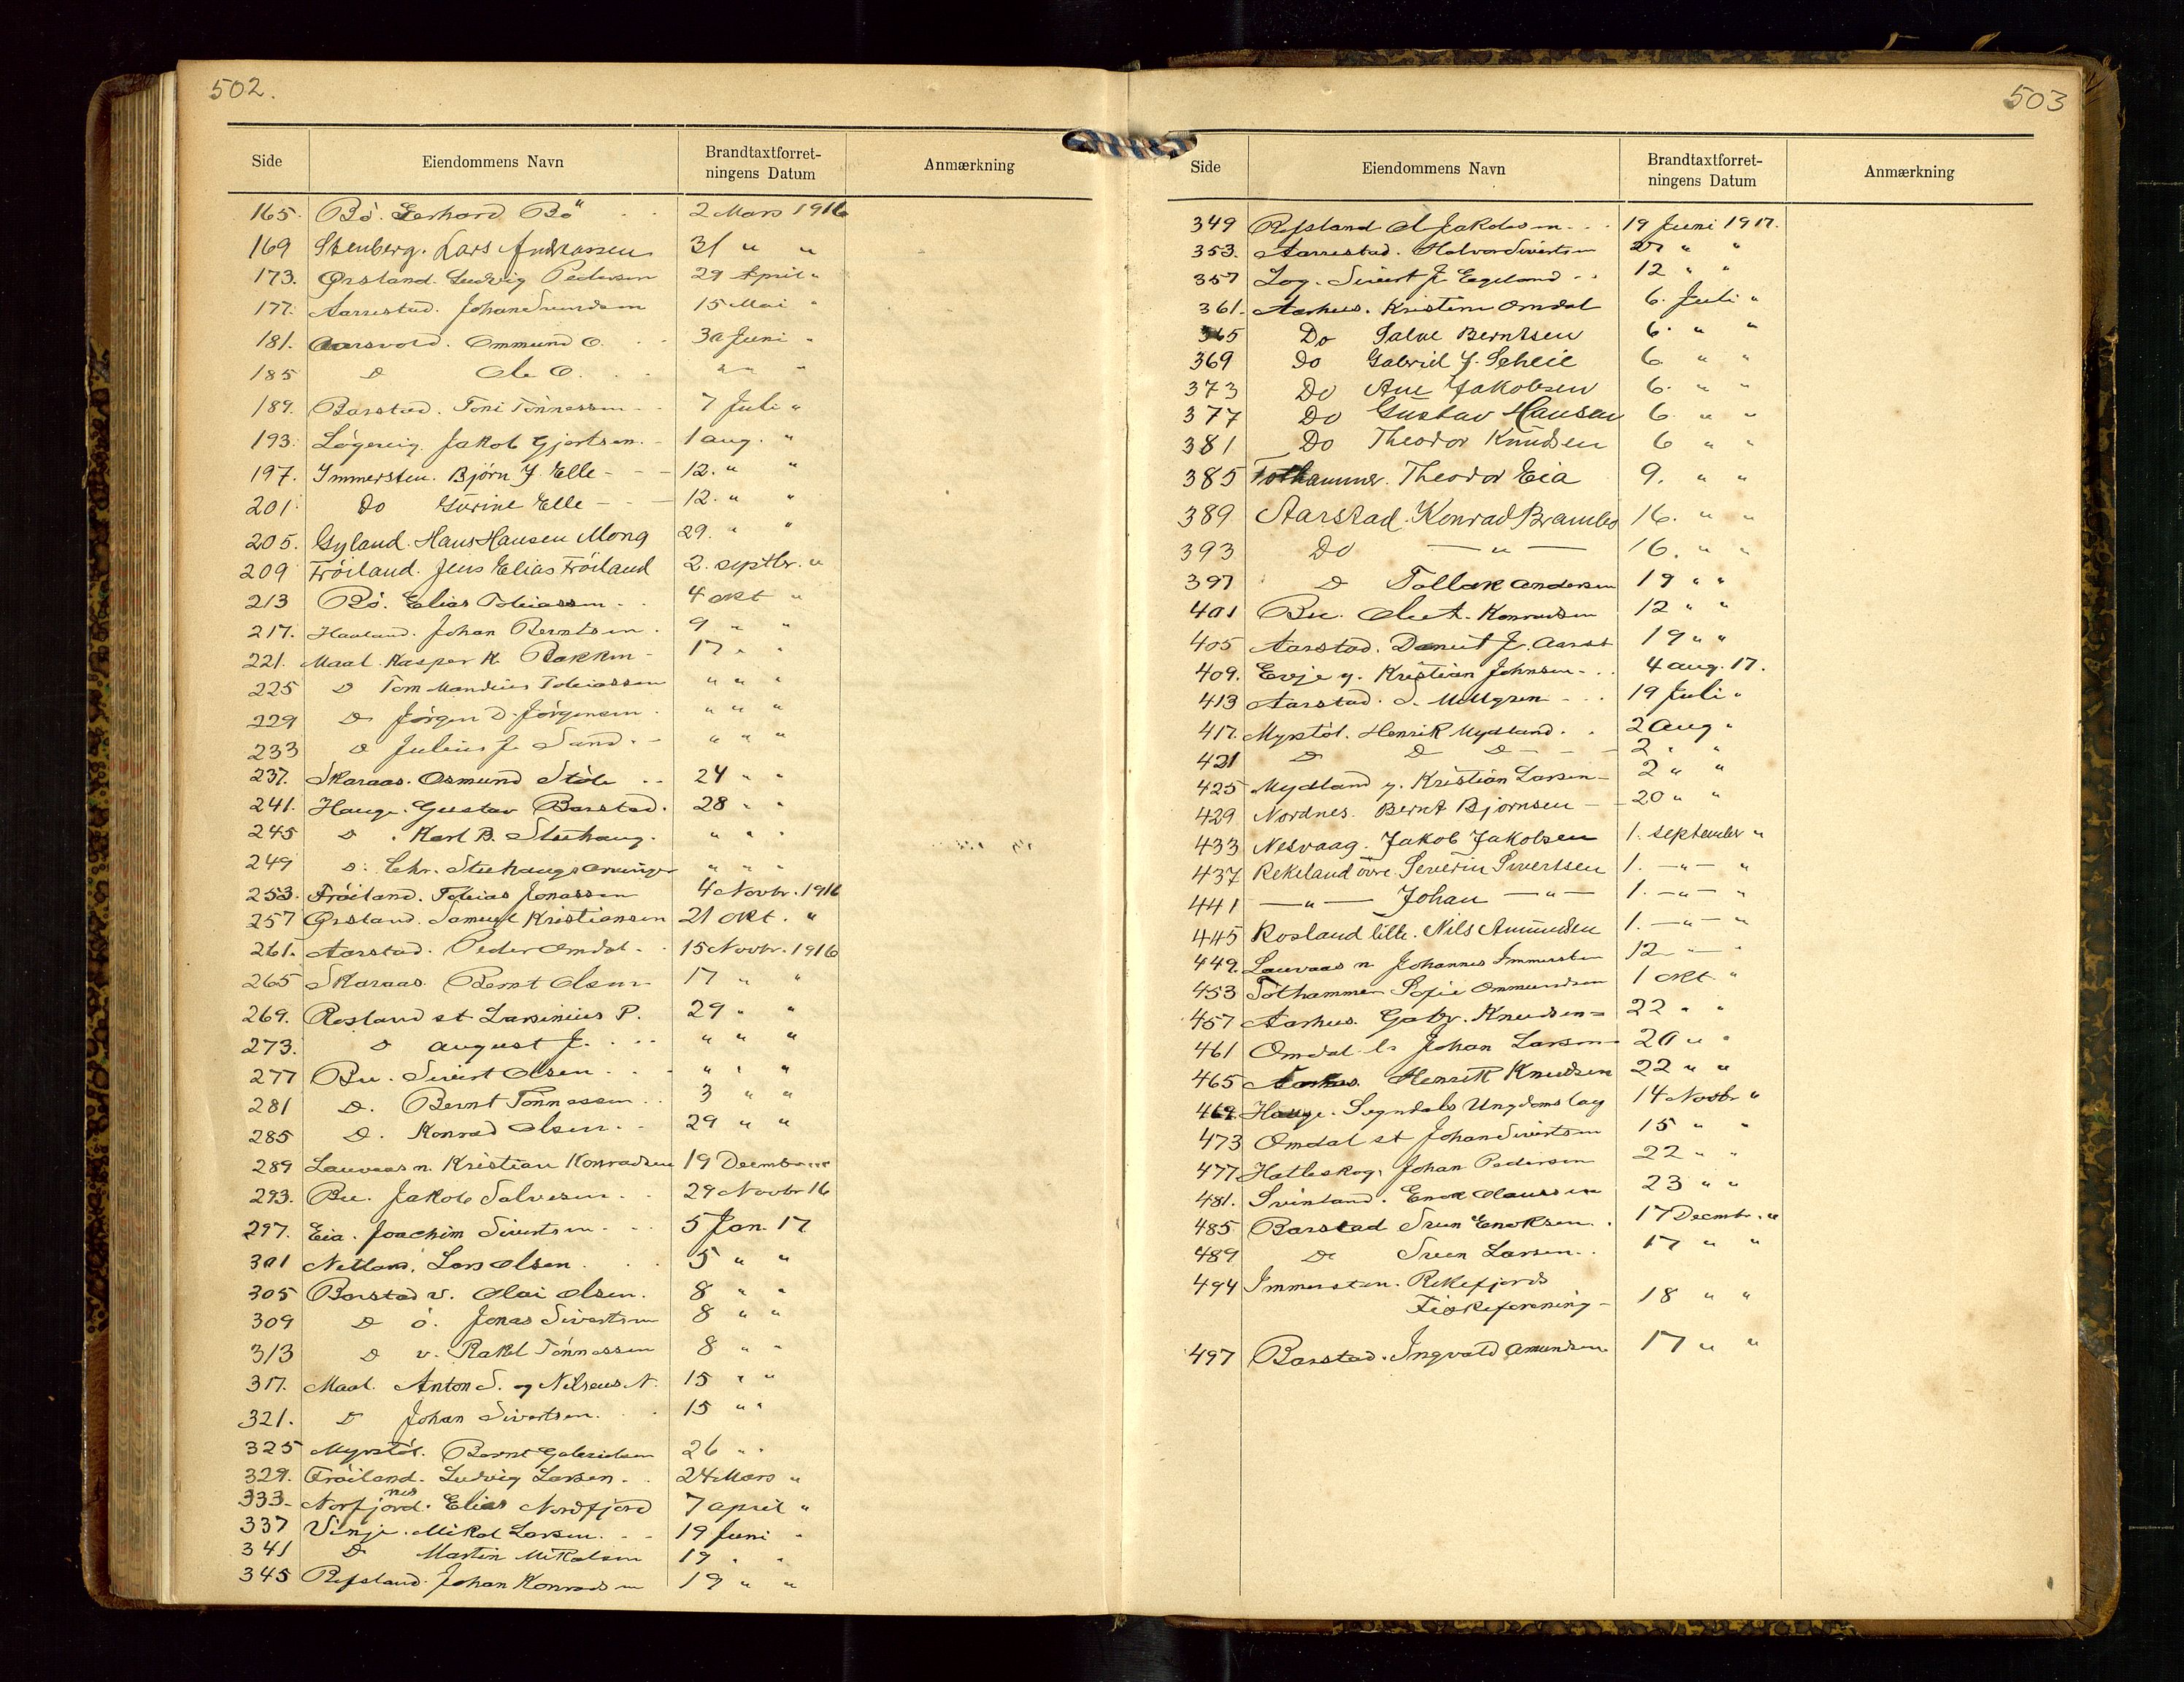 502.
Side Eiendommens Navn Brandtaxtforret-
ningens Datum Anmærkning
165. Bö. Gerhard Bö 2 Mars 1916
169 Stenberg. Lars Andreassen 31 " "
173. Ørsland. Ludvig Pedersen 29 April "
177. Aarrestad. Johan Svendsen 15 Mai "
181. Aarsvold. Ommund O. 30 Juni "
185 D Ole O. " " "
189. Barstad. Toni Tönnessen 7 Juli "
193. Lögevig. Jakob Gjertsen. 1 aug. "
197. Immersten. Björn J. Elle - - - 12. " "
201 Do Gurine Elle - - - 12. " "
205. Gyland. Hans Hansen Mong 29. " "
209 Fröiland. Jens Elias Fröiland 2. septbr. "
213 Bö. Elias Tobiassen. 4 okt "
217. Haaland. Johan Berntsen. 9 " "
221. Maal. Kasper K. Bakken - 17 " "
225 D Tom Mandius Tobiassen " " "
229 D Jörgen D. Jörgensen. " " "
233 D Julius J. Sand. - " " "
237. Skaraas. Osmund Stöle 24 " "
241. Hauge. Gustav Barstad. 28 " "
245 D. Karl B. Stuhaug. " " "
249 D. Chr. Stuhaugs arvinger " " "
253. Fröiland. Tobias Jonassen 4 Novbr. 1916
257 Ørsland. Samuel Kristiansen 21 okt. "
261. Aarstad. Peder Omdal. 15 Novbr. 1916
265 Skaraas. Bernt Olsen 17 " "
269. Rosland st Larsinius P. 29 " "
273. D August J. " " "
277 Bu. Sivert Olsen. " " "
281 D. Bernt Tönnessen. 3 " "
285 D. Konrad Olsen. 29 " "
289 Lauvaas n. Kristian Konradsen 19 Decembr "
293. Bu. Jakob Salvesen. 29 Novbr 16
297. Eia. Joachim Sivertsen. 5 Jan. 17
301 Netland. Lars Olsen. 5 " "
305 Barstad v. Olai Olsen. 8 " "
309 D ö. Jonas Sivertsen 8 " "
313 D v. Rakel Tönnessen 8 " "
317. Maal. Anton S. og Nilseus N. 15 " "
321. D Johan Sivertsen. 15 " "
325 Myrstöl. Bernt Gabrielsen 26 " "
329. Fröiland. Ludvig Larsen. 24 Mars "
nes
333. Norfjord. Elias Nordfjord 7 april "
337 Vinje. Mikal Larsen. 19 Juni "
341 D Martin Mikalsen 19 " "
345 Refsland. Johan Konradsen 19 " "
503
Side Eiendommens Navn Brandtaxtforret-
ningens Datum Anmærkning
349 Refsland Jakobsen. 19 Juni 1917.
353. Aarrestad. Halvor Sivertsen " "
357 Log. Sivert J. Eegeland 12 " "
361. Aarhus. Kristine Omdal 6. Juli "
365 Do Salve Berntsen 6. " "
369 Do Gabriel J. Scheie 6 " "
373 Do Ane Jakobsen 6. " "
377 Do Gustav Hansen 6. " "
381 Do Theodor Knudsen 6 " "
385 Tothammer. Theodor Eia 9. " "
389 Aarstad. Konrad Brambo 16. " "
393 Do — " — 16. " "
397 D Tollak Andersen 19 " "
401 Bu. Ole A. Konradsen 12 " "
405 Aarstad. Daniel J. Aarst 19 " "
409. Evje y. Kristian Johnsen. 4 aug. 17.
413 Aarstad. S. Mellgren 19 Juli "
417. Myrstöl. Henrik Mydland. 2 Aug "
421 D D D - - - 2 " "
425 Mydland y. Kristian Larsen - 2 " "
429 Nordnes. Bernt Bjornsen - 20 " "
433 Nesvaag. Jakob Jakobsen 1. september "
437 Rekeland övre. Severin Sivertsen 1. — " — "
441 — " — Johan — " — 1. — " — "
445 Rosland lille. Nils Amundsen 1. — " — "
449. Lauvaas n Johannes Immersten 12 — " — "
453 Tothammer Sofie Ommundsen 1 okt. "
457 Aarhus. Gabr. Knudsen 22 " "
461 Omdal l. Johan Larsen 20 " "
465 Aarhus. Henrik Knudsen 22 " "
469. Hauge. Sogndals Ungdomslag 14 Novbr "
473 Omdal st Johan Sivertsen 15 " "
477 Hatleskog. Johan Pedersen 22 " "
481. Svinland. Enok Claussen 23 " "
485 Barstad Sven Enoksen. 17 Decembr. "
489 D Sven Larsen. 17 " "
494 Immersten. Rekefjords
Fiskeforening - 18 " "
497 Barstad. Ingvald Amundsen 17 " "